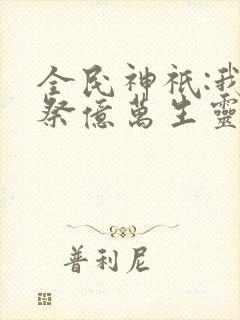 全民神祇:我
祭億萬生靈
普利尼